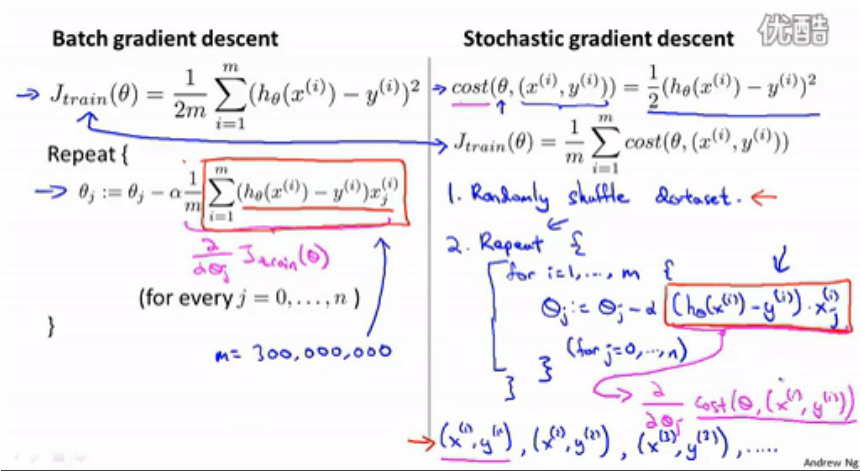 优酷
Batch gradient descent
J_train(θ) = 1/2m ∑_{i=1}^{m} (h_θ(x^(i)) − y^(i))²
Repeat {
θ_j := θ_j − α 1/m ∑_{i=1}^{m} (h_θ(x^(i)) − y^(i))x_j^(i)
∂/∂θ_j J_train(θ)
(for every j = 0, . . . , n )
}
m = 300,000,000
Stochastic gradient descent
cost(θ, (x^(i), y^(i))) = 1/2 (h_θ(x^(i)) − y^(i))²
J_train(θ) = 1/m ∑_{i=1}^{m} cost(θ, (x^(i), y^(i)))
1. Randomly shuffle dataset.
2. Repeat {
for i=1,..., m {
θ_j := θ_j − α (h_θ(x^(i)) − y^(i)) · x_j^(i)
(for j=0,...,n)
}
}
∂/∂θ_j cost(θ, (x^(i), y^(i)))
(x^(1), y^(1)), (x^(2), y^(2)), (x^(3), y^(3)), .....
Andrew Ng